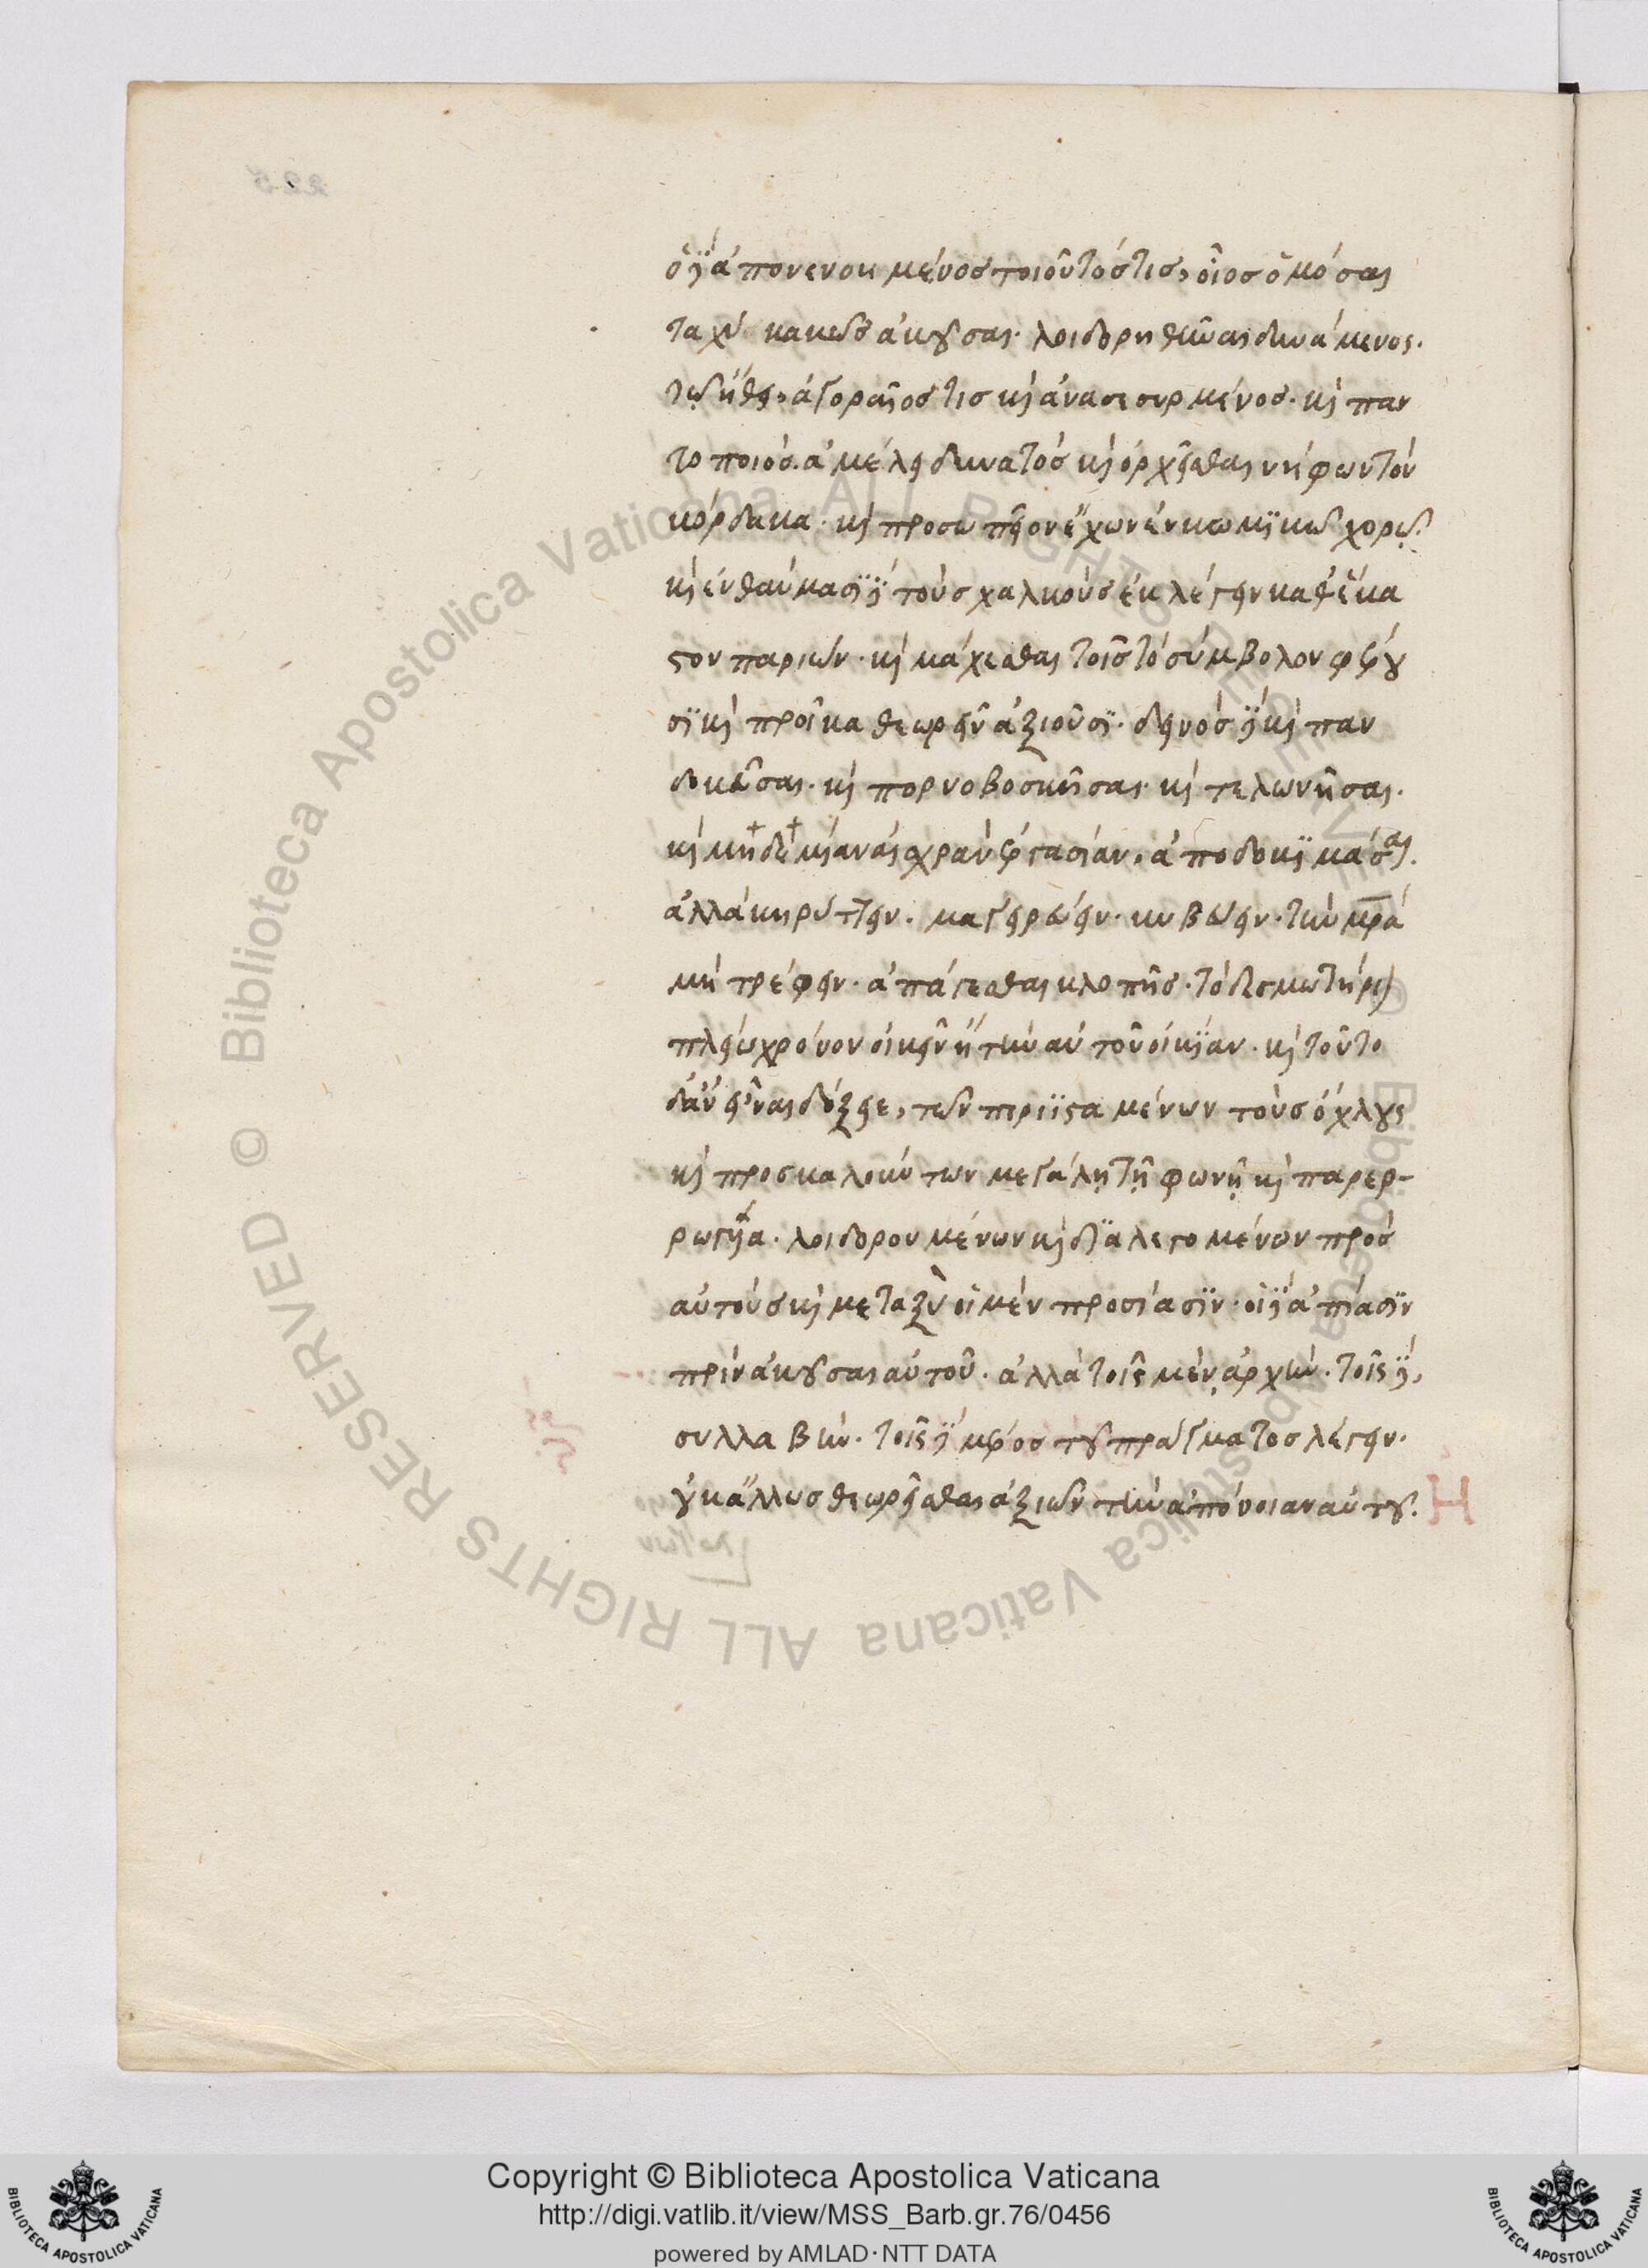 ὁ δὲ ἀπονενοημένος τοιοῦτός τις, οἷος ὀμόσαι
ταχύ· κακῶς ἀκοῦσαι· λοιδορηθῆναι δυνάμενος·
τῷ ἤθει, ἀγοραῖός τις καὶ ἀνασεσυρμένος· καὶ παν
τοποιός· ἀμέλει δυνατὸς καὶ ὀρχεῖσθαι νήφων τὸν
κόρδακα· καὶ προσωπεῖον ἔχων ἐν κωμικῷ χορῷ·
καὶ ἐν θαύμασι δὲ τοὺς χαλκοὺς ἐκλέγειν καθ' ἕκα
στον παριών· καὶ μάχεσθαι τοῖς τὸ σύμβολον φέρου
σι καὶ προῖκα θεωρεῖν ἀξιοῦσι· δεινὸς δὲ καὶ παν
δοκεῦσαι· καὶ πορνοβοσκῆσαι· καὶ τελωνῆσαι·
καὶ μηδεμίαν αἰσχρὰν ἐργασίαν, ἀποδοκιμάσαι·
ἀλλὰ κηρύττειν· μαγειρεύειν· κυβεύειν· τὴν μρα
μὴ τρέφειν· ἀπάγεσθαι κλοπῆς· τὸ δεσμωτήριον
πλείω χρόνον οἰκεῖν ἢ τὴν αὐτοῦ οἰκίαν· καὶ τοῦτο
δ' ἂν εἶναι δόξειε, τῶν περιϊσταμένων τοὺς ὄχλους
καὶ προσκαλούντων μεγάλῃ τῇ φωνῇ καὶ παρερ-
ρωγυίᾳ· λοιδορουμένων καὶ διαλεγομένων πρὸς
αὐτοὺς καὶ μεταξὺ οἱ μὲν προσίασιν· οἱ δὲ ἀπίασιν
πρὶν ἀκοῦσαι αὐτοῦ· ἀλλὰ τοῖς μὲν ἀρχὴν· τοῖς δὲ,
συλλαβὴν· τοῖς δὲ μέρος τοῦ πράγματος λέγειν·
οὐκ ἄλλως θεωρεῖσθαι ἀξιῶν τὴν ἀπόνοιαν αὐτοῦ·
Copyright © Biblioteca Apostolica Vaticana
http://digi.vatlib.it/view/MSS_Barb.gr.76/0456
powered by AMLAD · NTT DATA
© Biblioteca Apostolica Vaticana ALL RIGHTS RESERVED
BIBLIOTECA APOSTOLICA VATICANA
BIBLIOTECA APOSTOLICA VATICANA